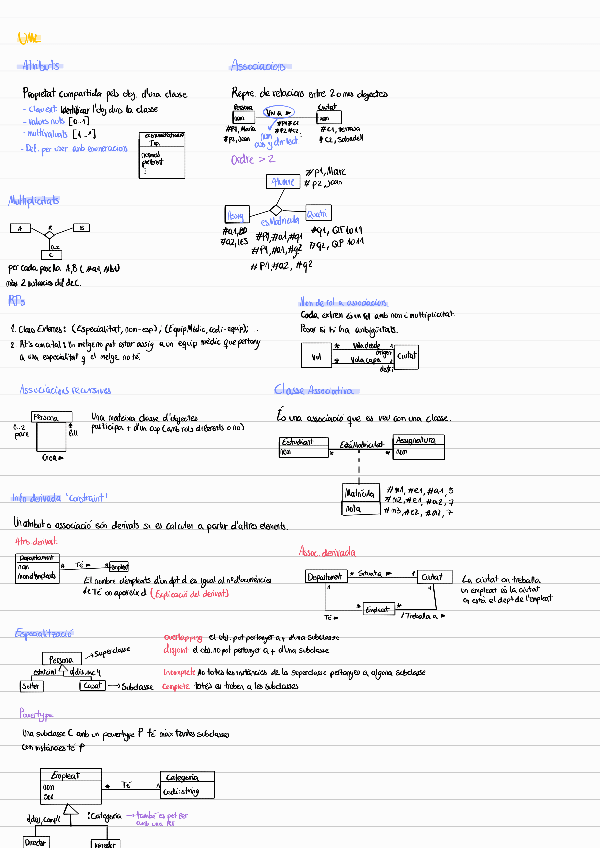 UML
Atributs
Propietat compartida pels obj. d'una classe
- Clau ext: Identificar l'obj dins la classe
- Valors nuls [0..1]
- multivaluats [1..*]
- Def. per user amb enumeracion
<<enumeration>>
Tap
normal
:
Associacions
Repre. de relacions entre 2 o més objectes
Persona
nom
Viu a ►
Ciutat
nom
#P1, Maria
#p2, Joan
#P1#C1
#P2#C2
#C1, Terrassa
#C2, Sabadell
Ordre > 2
Alumne
#p1, Marc
#p2, Joan
Assig
esMatricula
Quatri
#a1, BD
#a2, IES
#P1, #a1, #q1
#P1, #a1, #q2
#P1, #a2, #q2
#q1, QT 1019
#q2, QP 1011
Multiplicitats
A
R
B
0..2
C
per cada parella A,B (#a1, #b1)
màx 2 instàncies de C.
RTs
1. Claus Externes: (Especialitat, nom-esp), (Equip Mèdic, codi-equip);
2. Un metge no pot estar assig a un equip mèdic que pertany
a una especialitat q el metge no té.
Nom de rol a associacions
Cada extrem és un rol amb nom i multiplicitat
Posar si hi ha ambigüitats.
Vol
* Vol desde ►
origen
* Vol cap a ►
destí
Ciutat
Associacions recursives
Persona
0..2
pare
*
fill
Una mateixa classe d'objectes
participa + d'un cop (amb rols diferents o no)
Classe Associativa
És una associació que es veu com una classe.
Estudiant
nom
* EstàMatriculat *
Assignatura
nom
Matrícula
nota
#m1, #e1, #a1, 5
#m2, #e1, #a2, 7
#m3, #e2, #a2, 7
Info derivada 'constraint'
Un atribut o associació són derivats si es calculen a partir d'altres elements.
Atro derivat:
Departament
nom
Té ►
Empleat
El nombre d'empleats d'un dpt d es igual al nº d'ocurrències
de Té on apareix d (Explicació del derivat)
Assoc. derivada
Departament
* Situat a ► 1
Ciutat
1
Té ►
*
Empleat
*
/Treballa a ►
La ciutat on treballa
un empleat és la ciutat
on està el dept de l'empleat
Especialització
Persona
→ Superclasse
Solter
Casat
→ Subclasse
overlapping el obj. pot pertanyer a + d'una subclasse
disjoint el obj. no pot pertanyer a + d'una subclasse
Incomplete No totes les instàncies de la superclasse pertanyen a alguna subclasse
Complete totes es troben a les subclasses
Powertype
Una subclasse C amb un powertype P té tantes subclasses
com instàncies té P
Empleat
nom
* Té
Categoria
codi: string
: Categoria
→ també es pot fer
amb una RT
Director